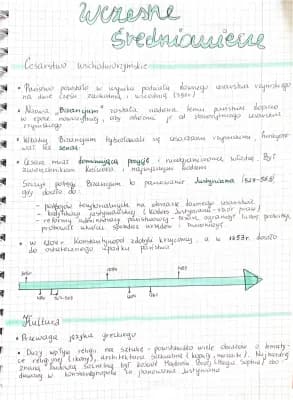 Wczesne
Średniowiecze
Cesarstwo wschodniorzymskie
• Państwo powstało w wyniku podziału dawnego cesarstwa rzymskiego
na dwie części: zachodnią i wschodnią (395r.)
• Nazwa „Bizancjum” została nadana temu państwu dopiero
w epoce nowożytnej, aby odróżnić je od starożytnego cesarstwa
rzymskiego
• Władcy Bizancjum tytułowali się cesarzami rzymskimi, funkcjono
wał też senat.
• Cesarz miał dominującą pozycję i nieograniczoną władzę. Był
zwierzchnikiem Kościoła i najwyższym sędzią
Szczyt potęgi Bizancjum to panowanie Justyniana (527-565)
gdy doszło do:
- podbojów terytorialnych na obszarze dawnego cesarstwa
- kodyfikacji justyniańskiej (Kodeks Justyniana - zbiór praw)
- reformy administracji państwowej -
• w 1204r. Konstantynopol zdobyli krzyżowcy, a w 1453r. doszło
do ostatecznego upadku państwa
Kultura
• Przewaga języka greckiego
• Duży wpływ religii na sztukę - powstawało wiele obrazów o tematy-
ce religijnej (ikony), architektura sakralna (kopuły, mozaiki). Najbardziej
znaną budowlą sakralną był kościół Mądrości Bożej (Hagia Sophia) zbu
dowany w Konstantynopolu za panowania Justyniana